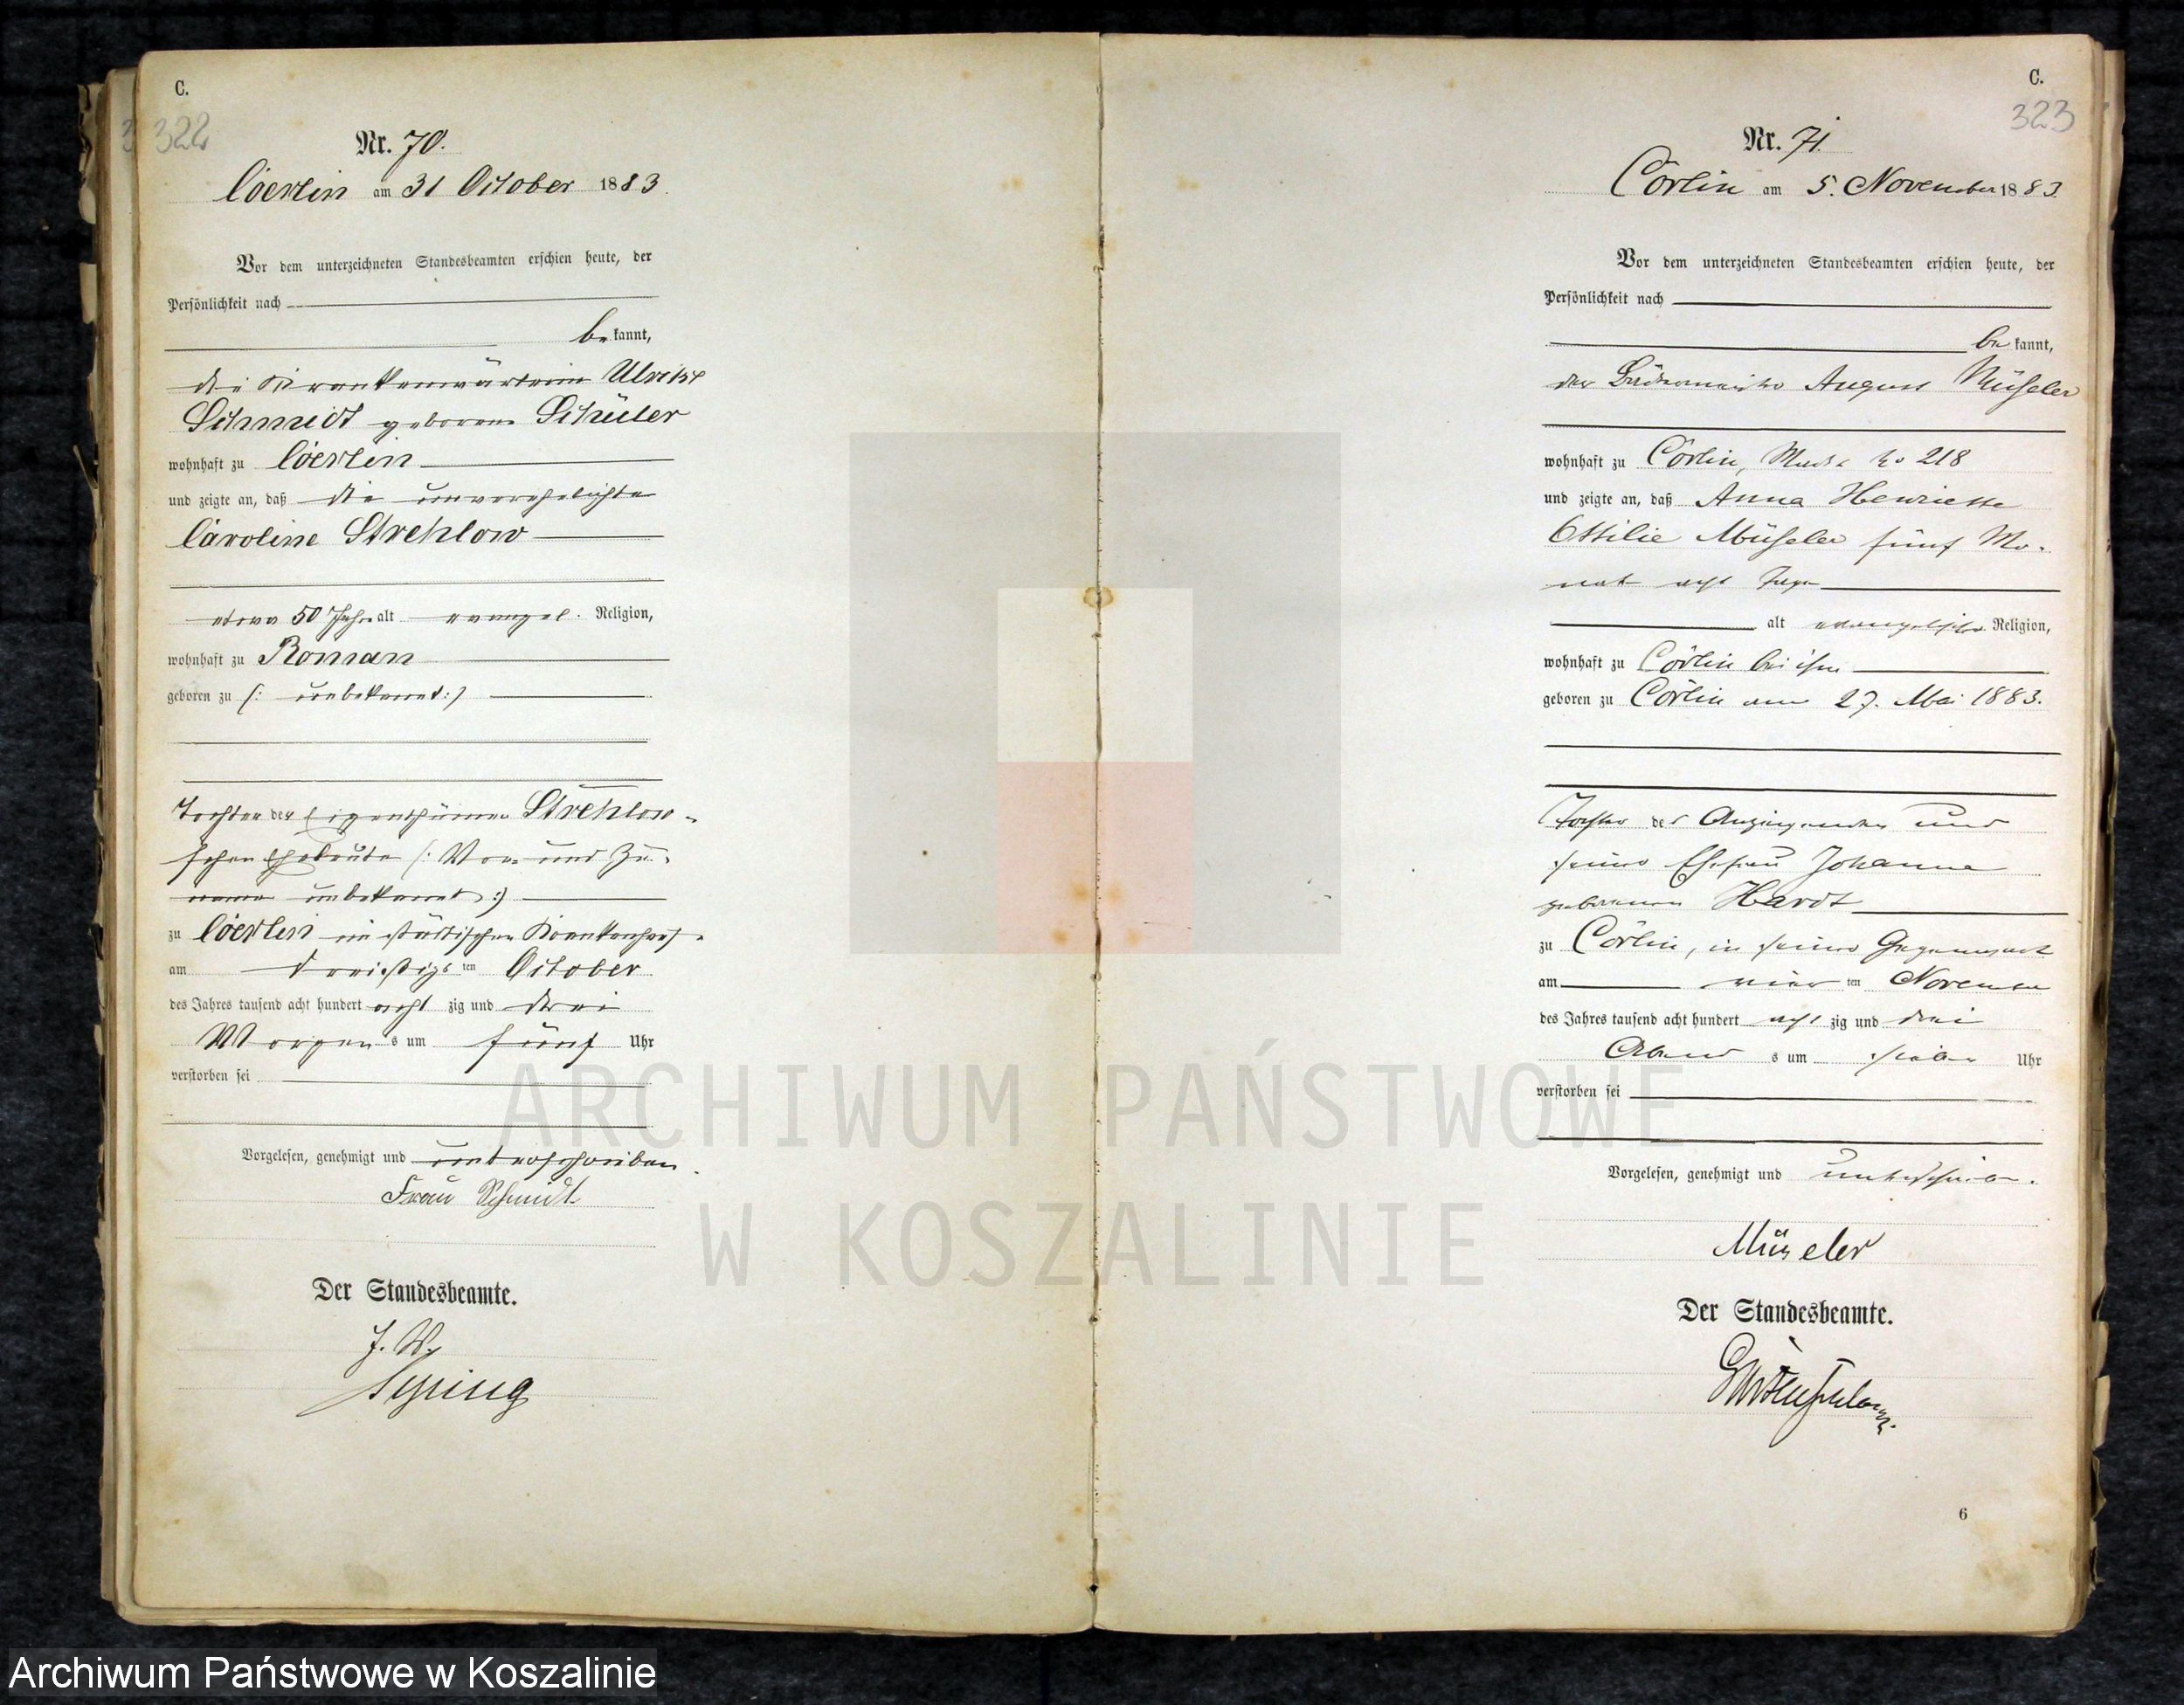 C.
322
Nr. 70.
Coerlin am 31 October 1883.
Vor dem unterzeichneten Standesbeamten erschien heute, der
Persönlichkeit nach
be kannt,
die Krankenwärterin Ulrike
Schmidt geborene Schüler
wohnhaft zu Coerlin
und zeigte an, daß die unverehelichte
Caroline Strehlow
etwa 50 Jahre alt evangel. Religion,
wohnhaft zu Roman
geboren zu (: unbekannt :)
Tochter der Eigenthümer Strehlow-
schen Eheleute (: Vor- und Zu-
name unbekannt :)
zu Coerlin im städtischen Krankenhause
am dreißigs ten October
des Jahres tausend acht hundert acht zig und drei
Morgens um fünf Uhr
verstorben sei
Vorgelesen, genehmigt und unterschrieben
Frau Schmidt
Der Standesbeamte.
J. V.
C.
323
Nr. 71.
Cörlin am 5. November 1883.
Vor dem unterzeichneten Standesbeamten erschien heute, der
Persönlichkeit nach
be kannt,
der August Müseler
wohnhaft zu Cörlin, Markt No 218
und zeigte an, daß Anna Henriette
Ottilie Müseler fünf Mo-
nat acht Tage
alt evangelischer Religion,
wohnhaft zu Cörlin bei ihm
geboren zu Cörlin am 27. Mai 1883.
Tochter des Anzeigenden und
seiner Ehefrau Johanna
geborenen Hardt
zu Cörlin, in seiner Gegenwart
am vier ten November
des Jahres tausend acht hundert acht zig und drei
Abends um sieben Uhr
verstorben sei
Vorgelesen, genehmigt und unterschrieben.
Müseler
Der Standesbeamte.
6
ARCHIWUM PAŃSTWOWE
W KOSZALINIE
Archiwum Państwowe w Koszalinie